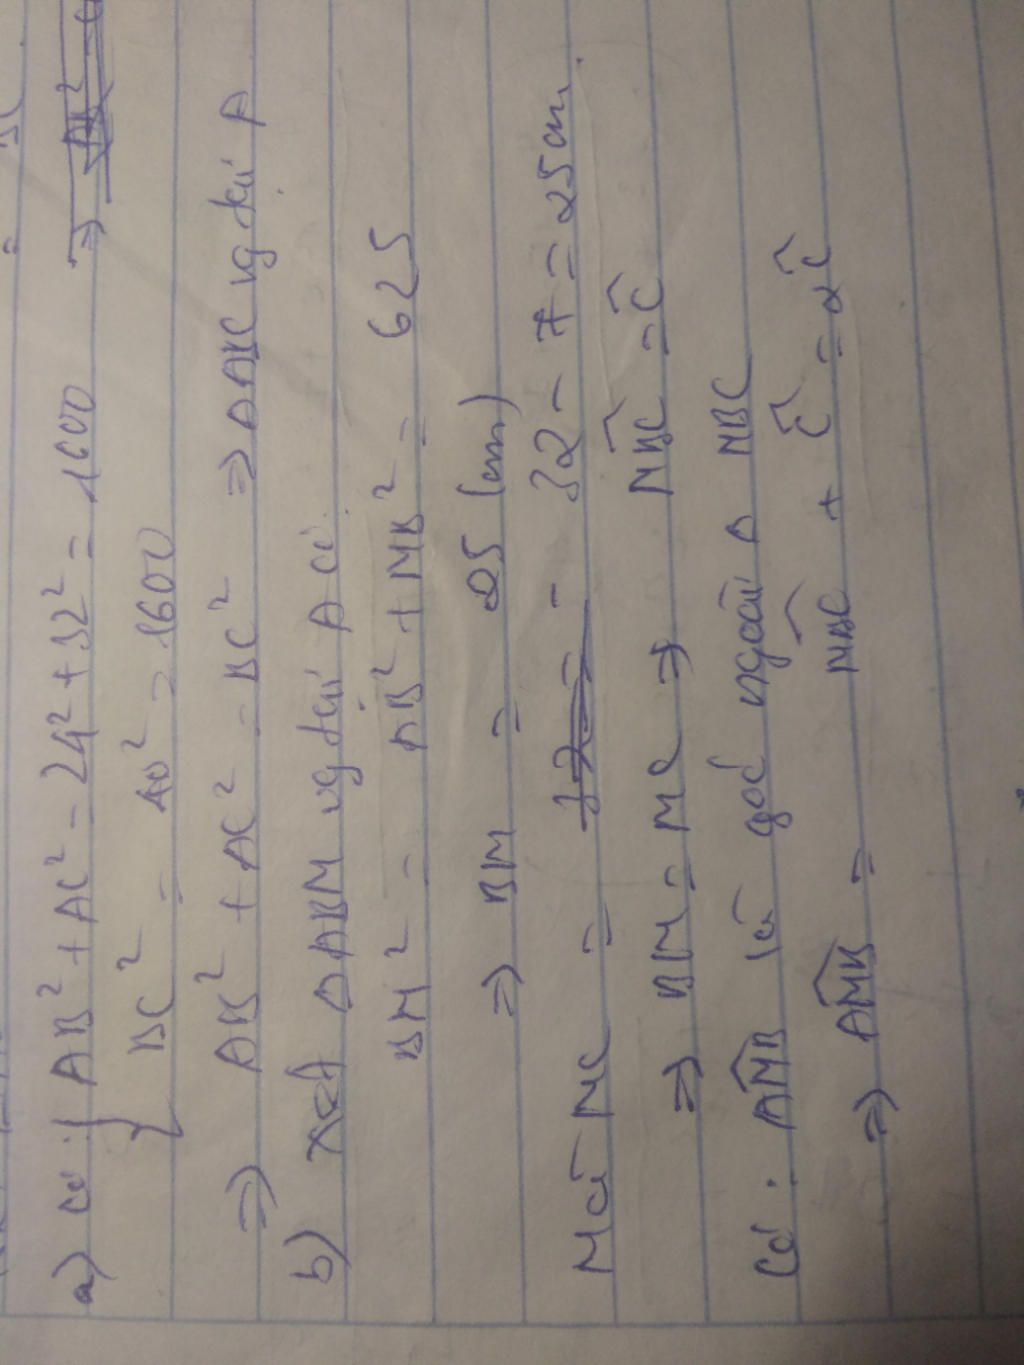 a) Có: { AB² + AC² = 24² + 32² = 1600 ⇒
BC² = 40² = 1600
⇒ AB² + AC² = BC² ⇒ ΔABC vg tại A
b) Xét ΔABM vg tại A có:
BM² = AB² + MB² = 625
⇒ BM = 25 (cm)
Mà MC = 32 - 7 = 25cm.
⇒ BM = MC ⇒ MBC = C
Có: AMB là góc ngoài Δ MBC
⇒ AMB = MBC + C = 2C